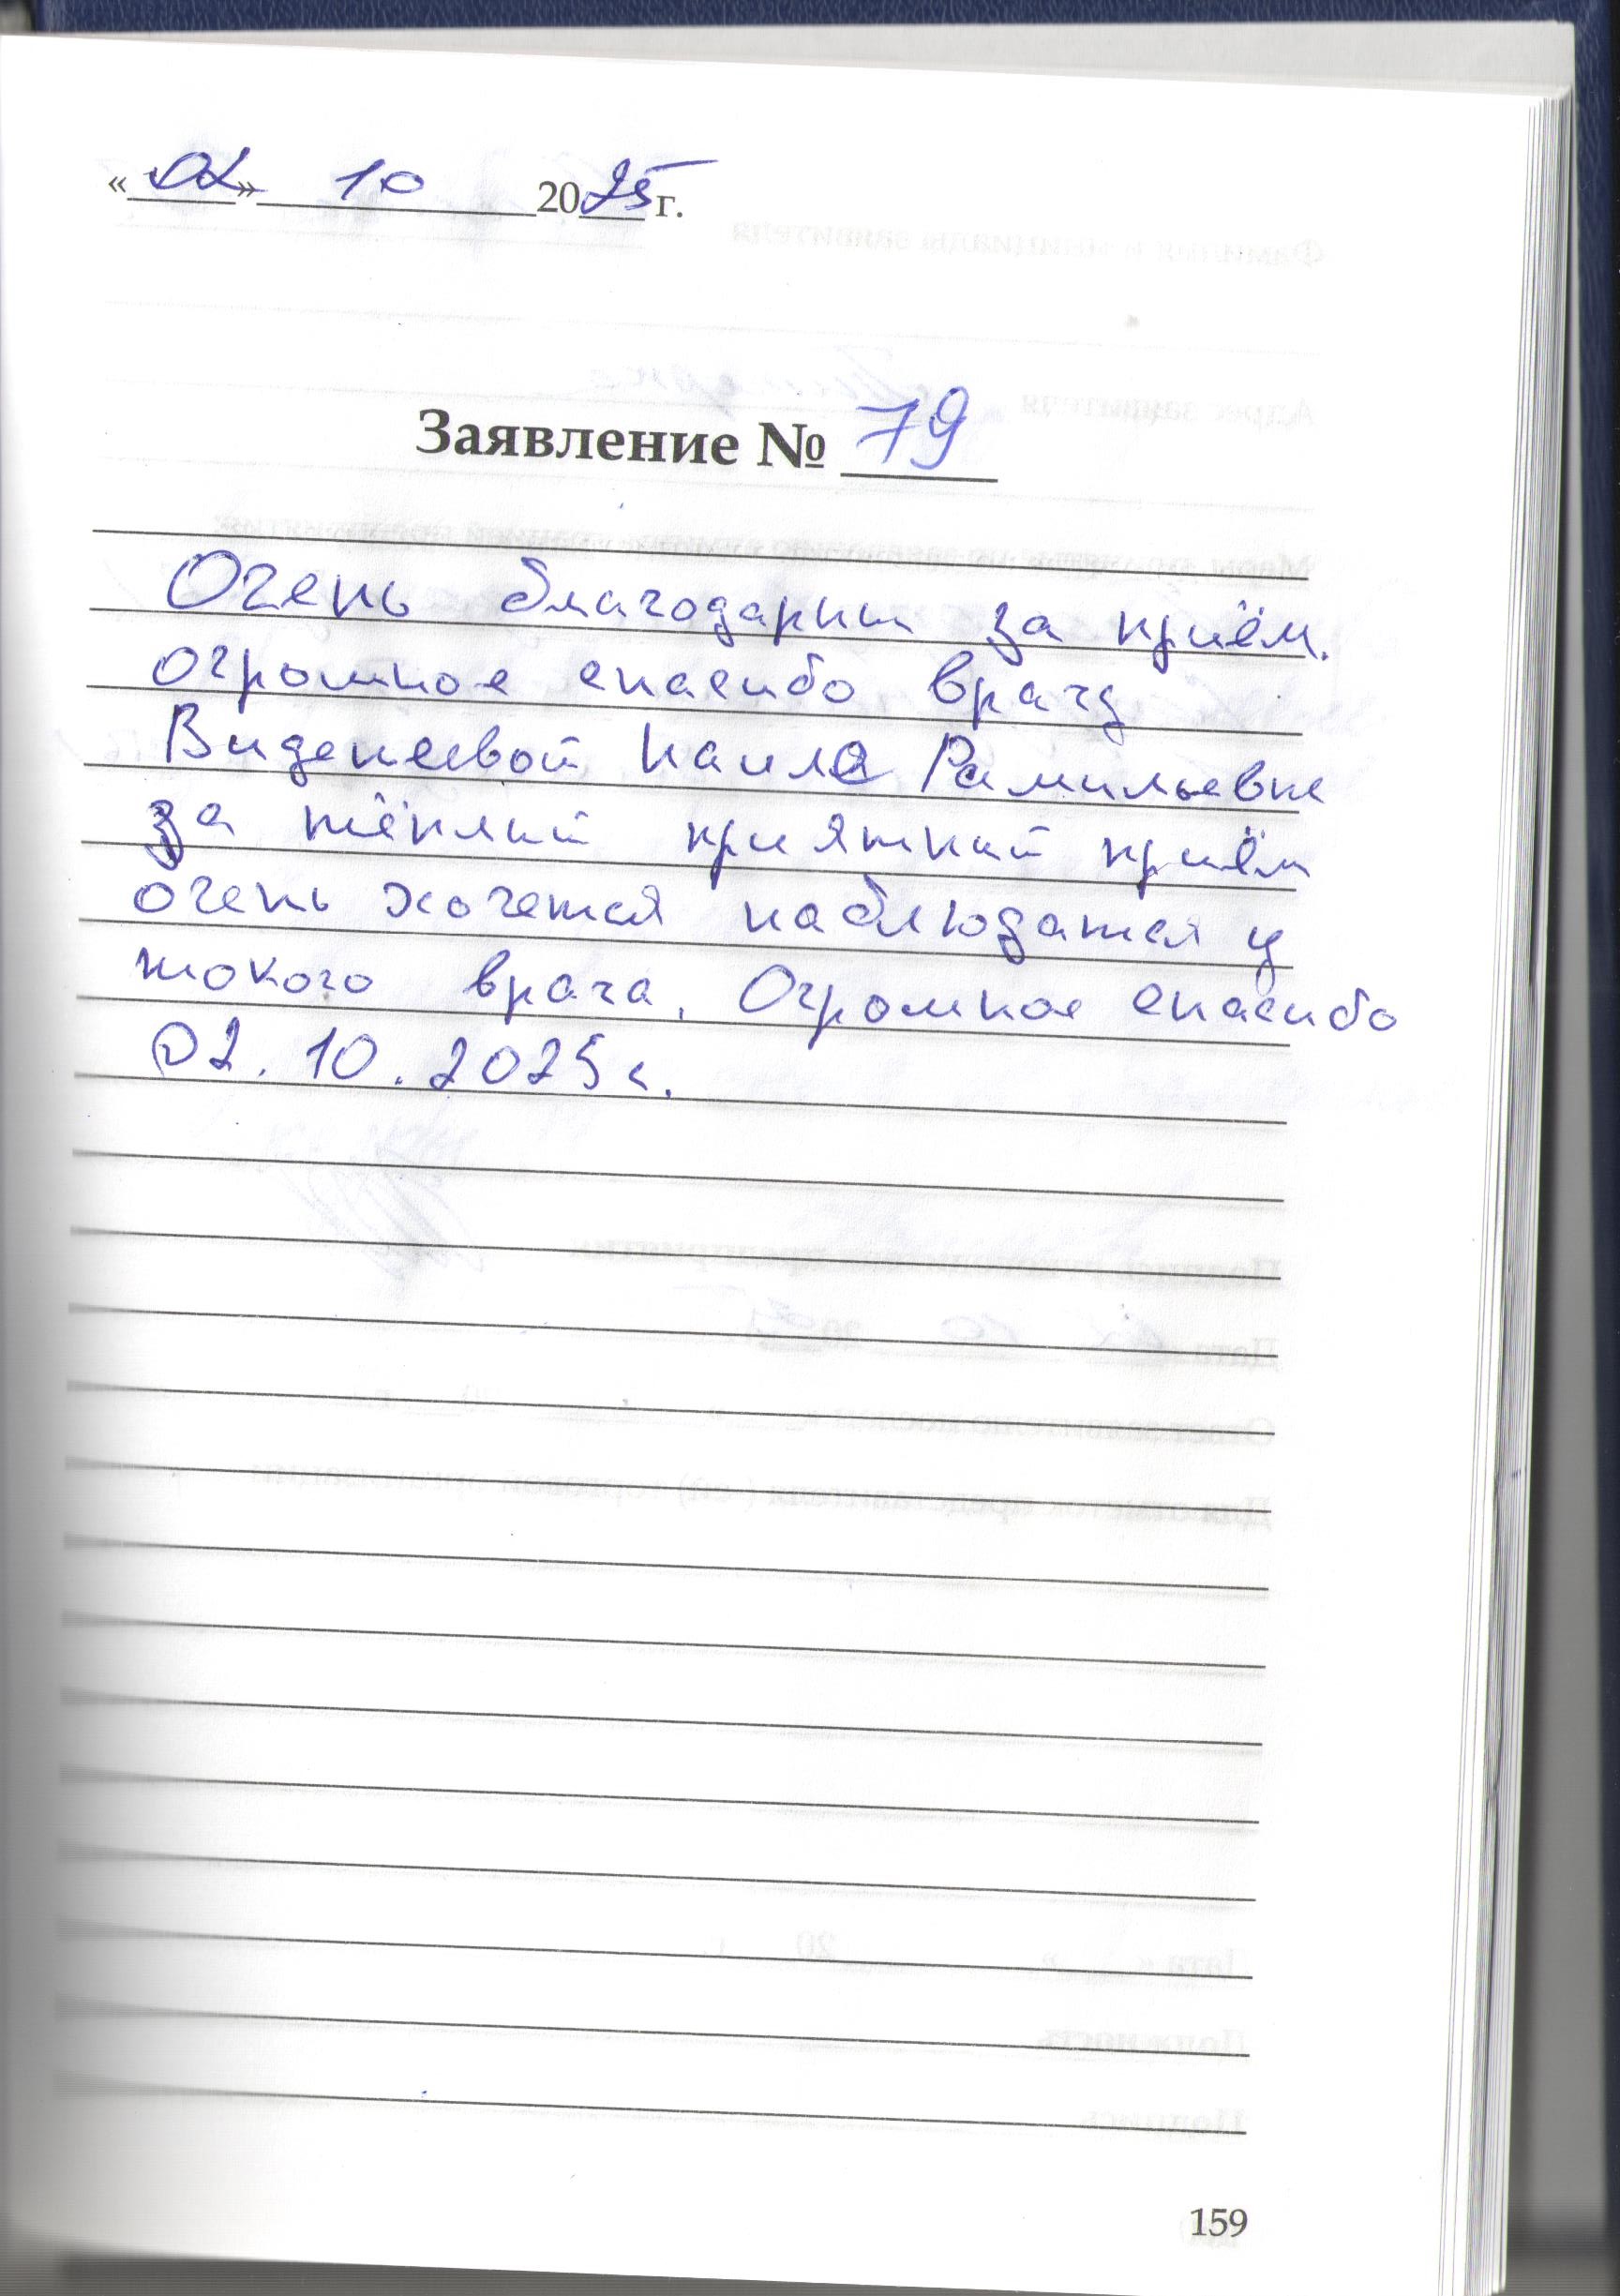 «02» 10 2025 г.
Заявление № 79
Очень благодарны за приём.
огромное спасибо врачу
Виденеевой Наиле Рамильевне
за тёплый приятный приём
очень хочется наблюдатся у
токого врача. Огромное спасибо
02.10.2025г.
159